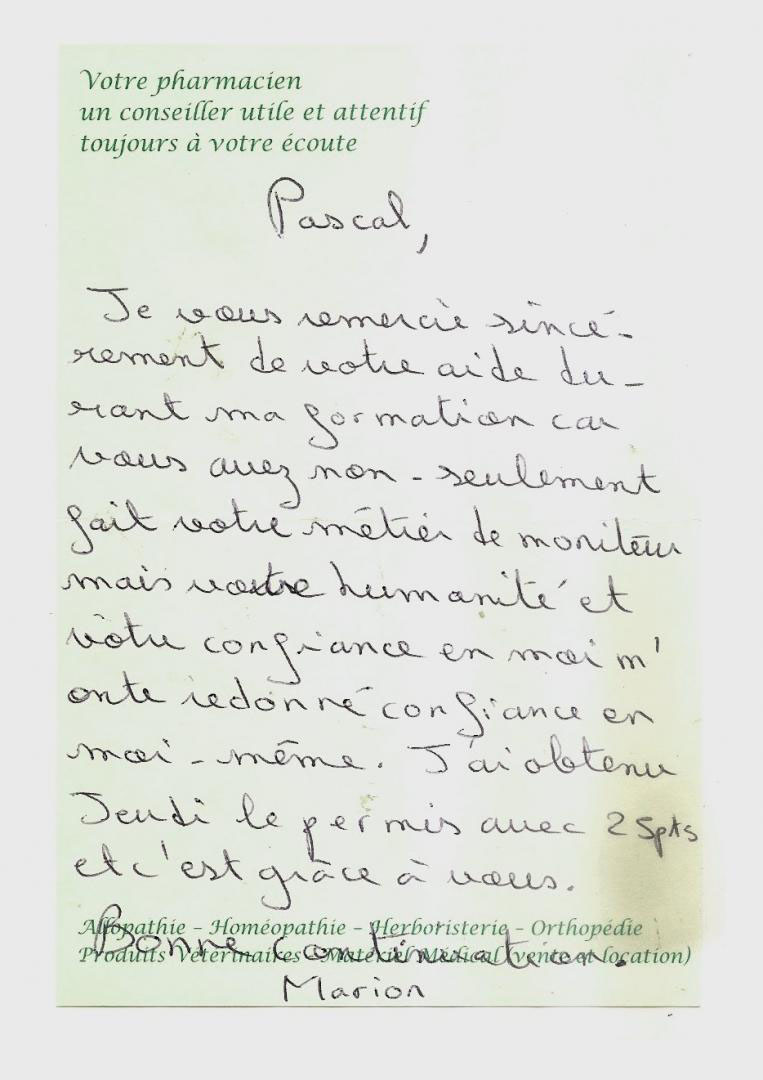 Votre pharmacien
un conseiller utile et attentif
toujours à votre écoute
Pascal,
Je vous remercie sincé-
rement de votre aide du-
rant ma formation car
vous avez non-seulement
fait votre métier de moniteur
mais votre humanité et
votre confiance en moi m'
onte redonné confiance en
moi-même. J'ai obtenu
Jeudi le permis avec 25pts
et c'est grâce à vous.
Allopathie – Homéopathie – Herboristerie – Orthopédie
Bonne continuation.
Produits Vétérinaires – Matériel Médical (vente et location)
Marion